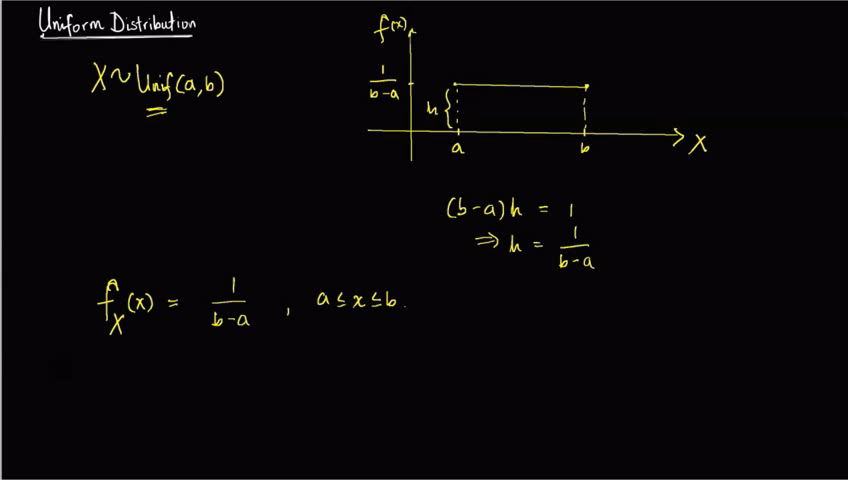 Uniform Distribution
X ~ Unif(a,b)
f(x)
1
b-a
h
a
b
X
(b-a)h = 1
⇒ h = 1/(b-a)
f_X(x) = 1/(b-a) , a ≤ x ≤ b.